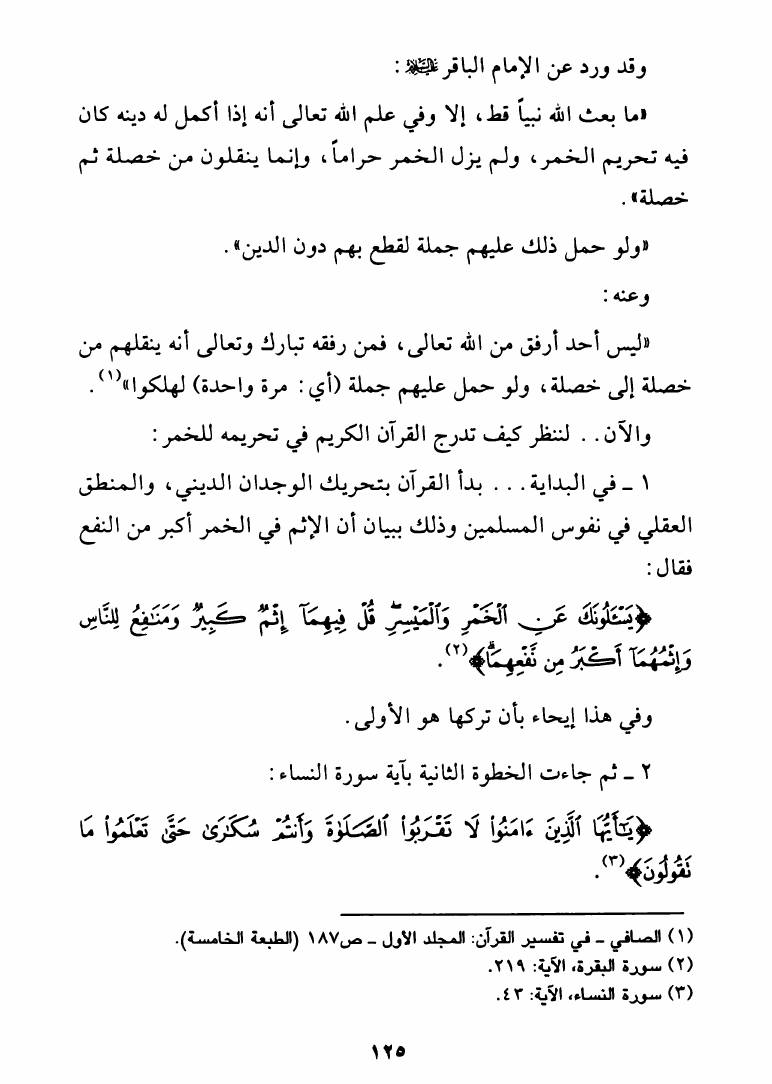 وقد ورد عن الإمام الباقر عليه السلام :
«ما بعث الله نبياً قط، إلا وفي علم الله تعالى أنه إذا أكمل له دينه كان
فيه تحريم الخمر، ولم يزل الخمر حراماً، وإنما ينقلون من خصلة ثم
خصلة».
«ولو حمل ذلك عليهم جملة لقطع بهم دون الدين».
وعنه :
«ليس أحد أرفق من الله تعالى، فمن رفقه تبارك وتعالى أنه ينقلهم من
خصلة إلى خصلة، ولو حمل عليهم جملة (أي: مرة واحدة) لهلكوا»(١).
والآن.. لننظر كيف تدرج القرآن الكريم في تحريمه للخمر:
١ - في البداية... بدأ القرآن بتحريك الوجدان الديني، والمنطق
العقلي في نفوس المسلمين وذلك ببيان أن الإثم في الخمر أكبر من النفع
فقال:
﴿يَسْـَٔلُونَكَ عَنِ ٱلْخَمْرِ وَٱلْمَيْسِرِ ۖ قُلْ فِيهِمَآ إِثْمٌ كَبِيرٌ وَمَنَـٰفِعُ لِلنَّاسِ
وَإِثْمُهُمَآ أَكْبَرُ مِن نَّفْعِهِمَا ۗ﴾(٢).
وفي هذا إيحاء بأن تركها هو الأولى.
٢ - ثم جاءت الخطوة الثانية بآية سورة النساء:
﴿يَـٰٓأَيُّهَا ٱلَّذِينَ ءَامَنُوا۟ لَا تَقْرَبُوا۟ ٱلصَّلَوٰةَ وَأَنتُمْ سُكَـٰرَىٰ حَتَّىٰ تَعْلَمُوا۟ مَا
تَقُولُونَ﴾(٣).
(١) الصافي - في تفسير القرآن: المجلد الأول - ص١٨٧ (الطبعة الخامسة).
(٢) سورة البقرة، الآية: ٢١٩.
(٣) سورة النساء، الآية: ٤٣.
١٢٥